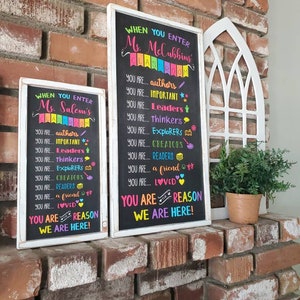 WHEN YOU ENTER
Ms. Salem's
CLASSROOM
YOU ARE... authors
YOU ARE... IMPORTANT
YOU ARE... Leaders
YOU ARE... thinkers
YOU ARE... ExploRERs
YOU ARE... CREATORS
YOU ARE... READERS
YOU ARE... a friend
YOU ARE... LOVED
YOU ARE THE REASON
WE ARE HERE!
WHEN YOU ENTER
Ms. McCubbins'
CLASSROOM
YOU ARE... authors
YOU ARE... IMPORTANT
YOU ARE... Leaders
YOU ARE... thinkers
YOU ARE... ExploRERs
YOU ARE... CREATORS
YOU ARE... READERS
YOU ARE... a friend
YOU ARE... LOVED
YOU ARE THE REASON
WE ARE HERE!